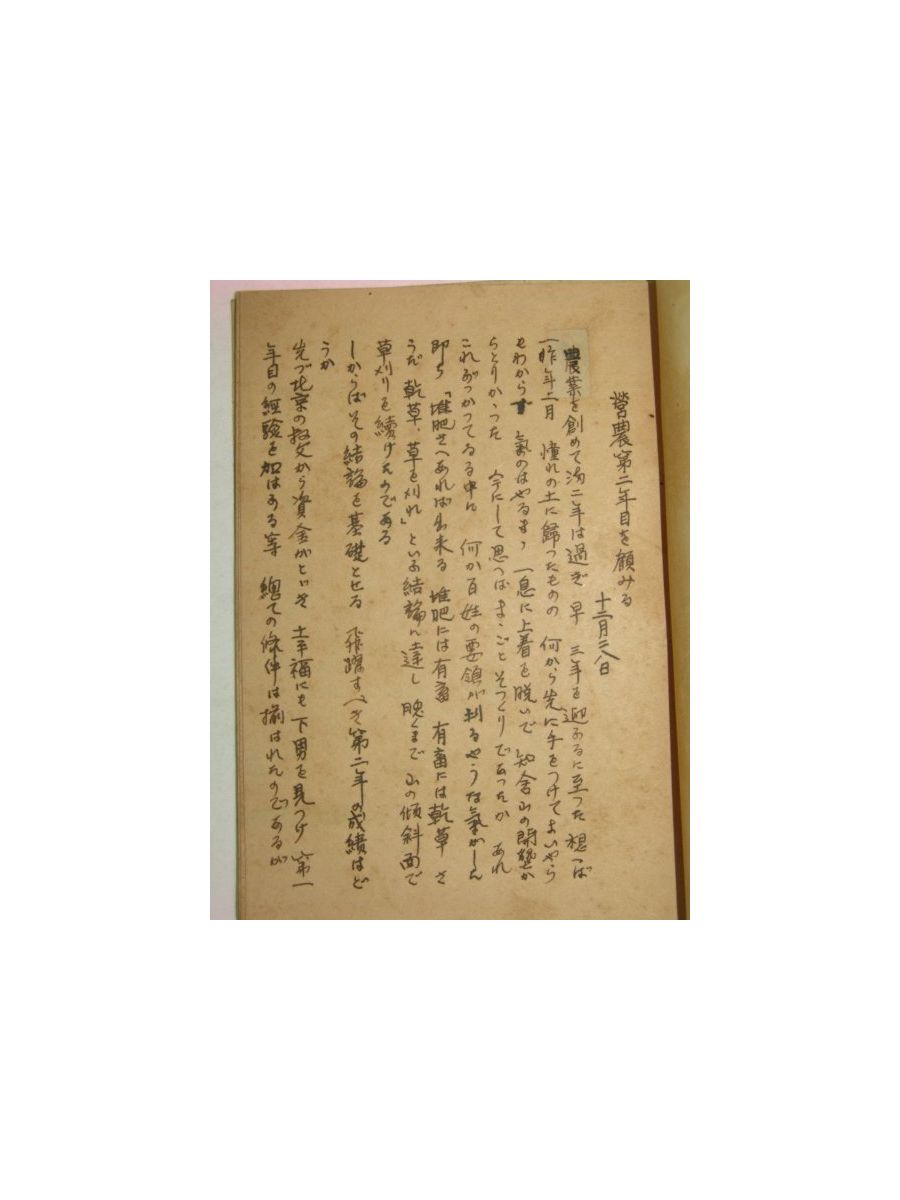 營農第二年目を顧みる
十二月二八日
農業を創めて満二年は過ぎ 早 三年を迎あるに至つた 想へば
一昨年二月 憧れの土に歸つたものの 何から先に手をつけてよいやら
もわからず 氣のはやるまゝ 一息に上着を脱いで 知舍山の開墾か
らとりかゝつた 今にして思へば まゝごとそつくりであつたが あれ
これぶつかつてゐる中に 何か百姓の要領が判るやうな氣がしん
即ち「堆肥さへあれば出来る 堆肥には有畜 有畜には乾草 さ
うだ 乾草、草を刈れ」といふ結論に達し 晩くまで 山の傾斜面で
草刈りを續けたのである
しからばその結論を基礎とせる 飛躍すべき第二年の成績はど
うか
先づ北京の叔父から資金がとゞき 幸福にも下男を見つけ 第一
年目の經驗を加はある等 總ての條件は揃はれたのであるが